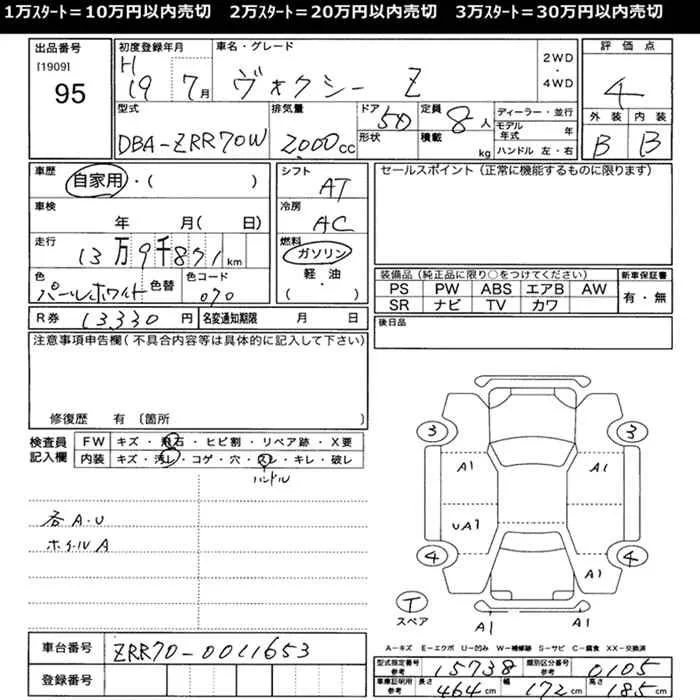 1万ｽﾀｰﾄ＝10万円以内売切　2万ｽﾀｰﾄ＝20万円以内売切　3万ｽﾀｰﾄ＝30万円以内売切
出品番号
[1909]
95
初度登録年月
H
19 7月
車名・グレード
ヴォクシー Z
2WD
・
4WD
評価点
4
外装 内装
B B
型式
DBA-ZRR70W
排気量
2000cc
ドア
5D
形状
定員
8人
積載
kg
ディーラー・並行
モデル年式 年
ハンドル 左・右
車歴
自家用・( )
車検
年 月( 日)
走行
13万9千871km
色
パールホワイト
色替
色コード
070
シフト
AT
冷房
AC
燃料
ガソリン
軽・油
・( )
セールスポイント（正常に機能するものに限ります）
装備品（純正品に限り○をつけてください）
PS PW ABS エアB AW
SR ナビ TV カワ
新車保証書
有・無
R券 13,330 円
名変通知期限 月 日
後日品
注意事項申告欄(不具合内容等は具体的に記入して下さい)
修復歴 有〔箇所 〕
検査員
記入欄
FW キズ・飛石・ヒビ割・リペア跡・X要
内装 キズ・汚レ・コゲ・穴・スレ・キレ・破レ
ハンドル
各A・U
ホイールA
3 3
A1 A1
UA1
4 4
A1
T
スペア
A1 A1
A－キズ E－エクボ U－凹み W－補修跡 S－サビ C－腐食 XX－交換済
車台番号 ZRR70-0011653
登録番号
型式指定番号
参考
15738
類別区分番号
参考
0105
車庫証明用
参考
長さ 464cm 幅 172cm 高さ 185cm